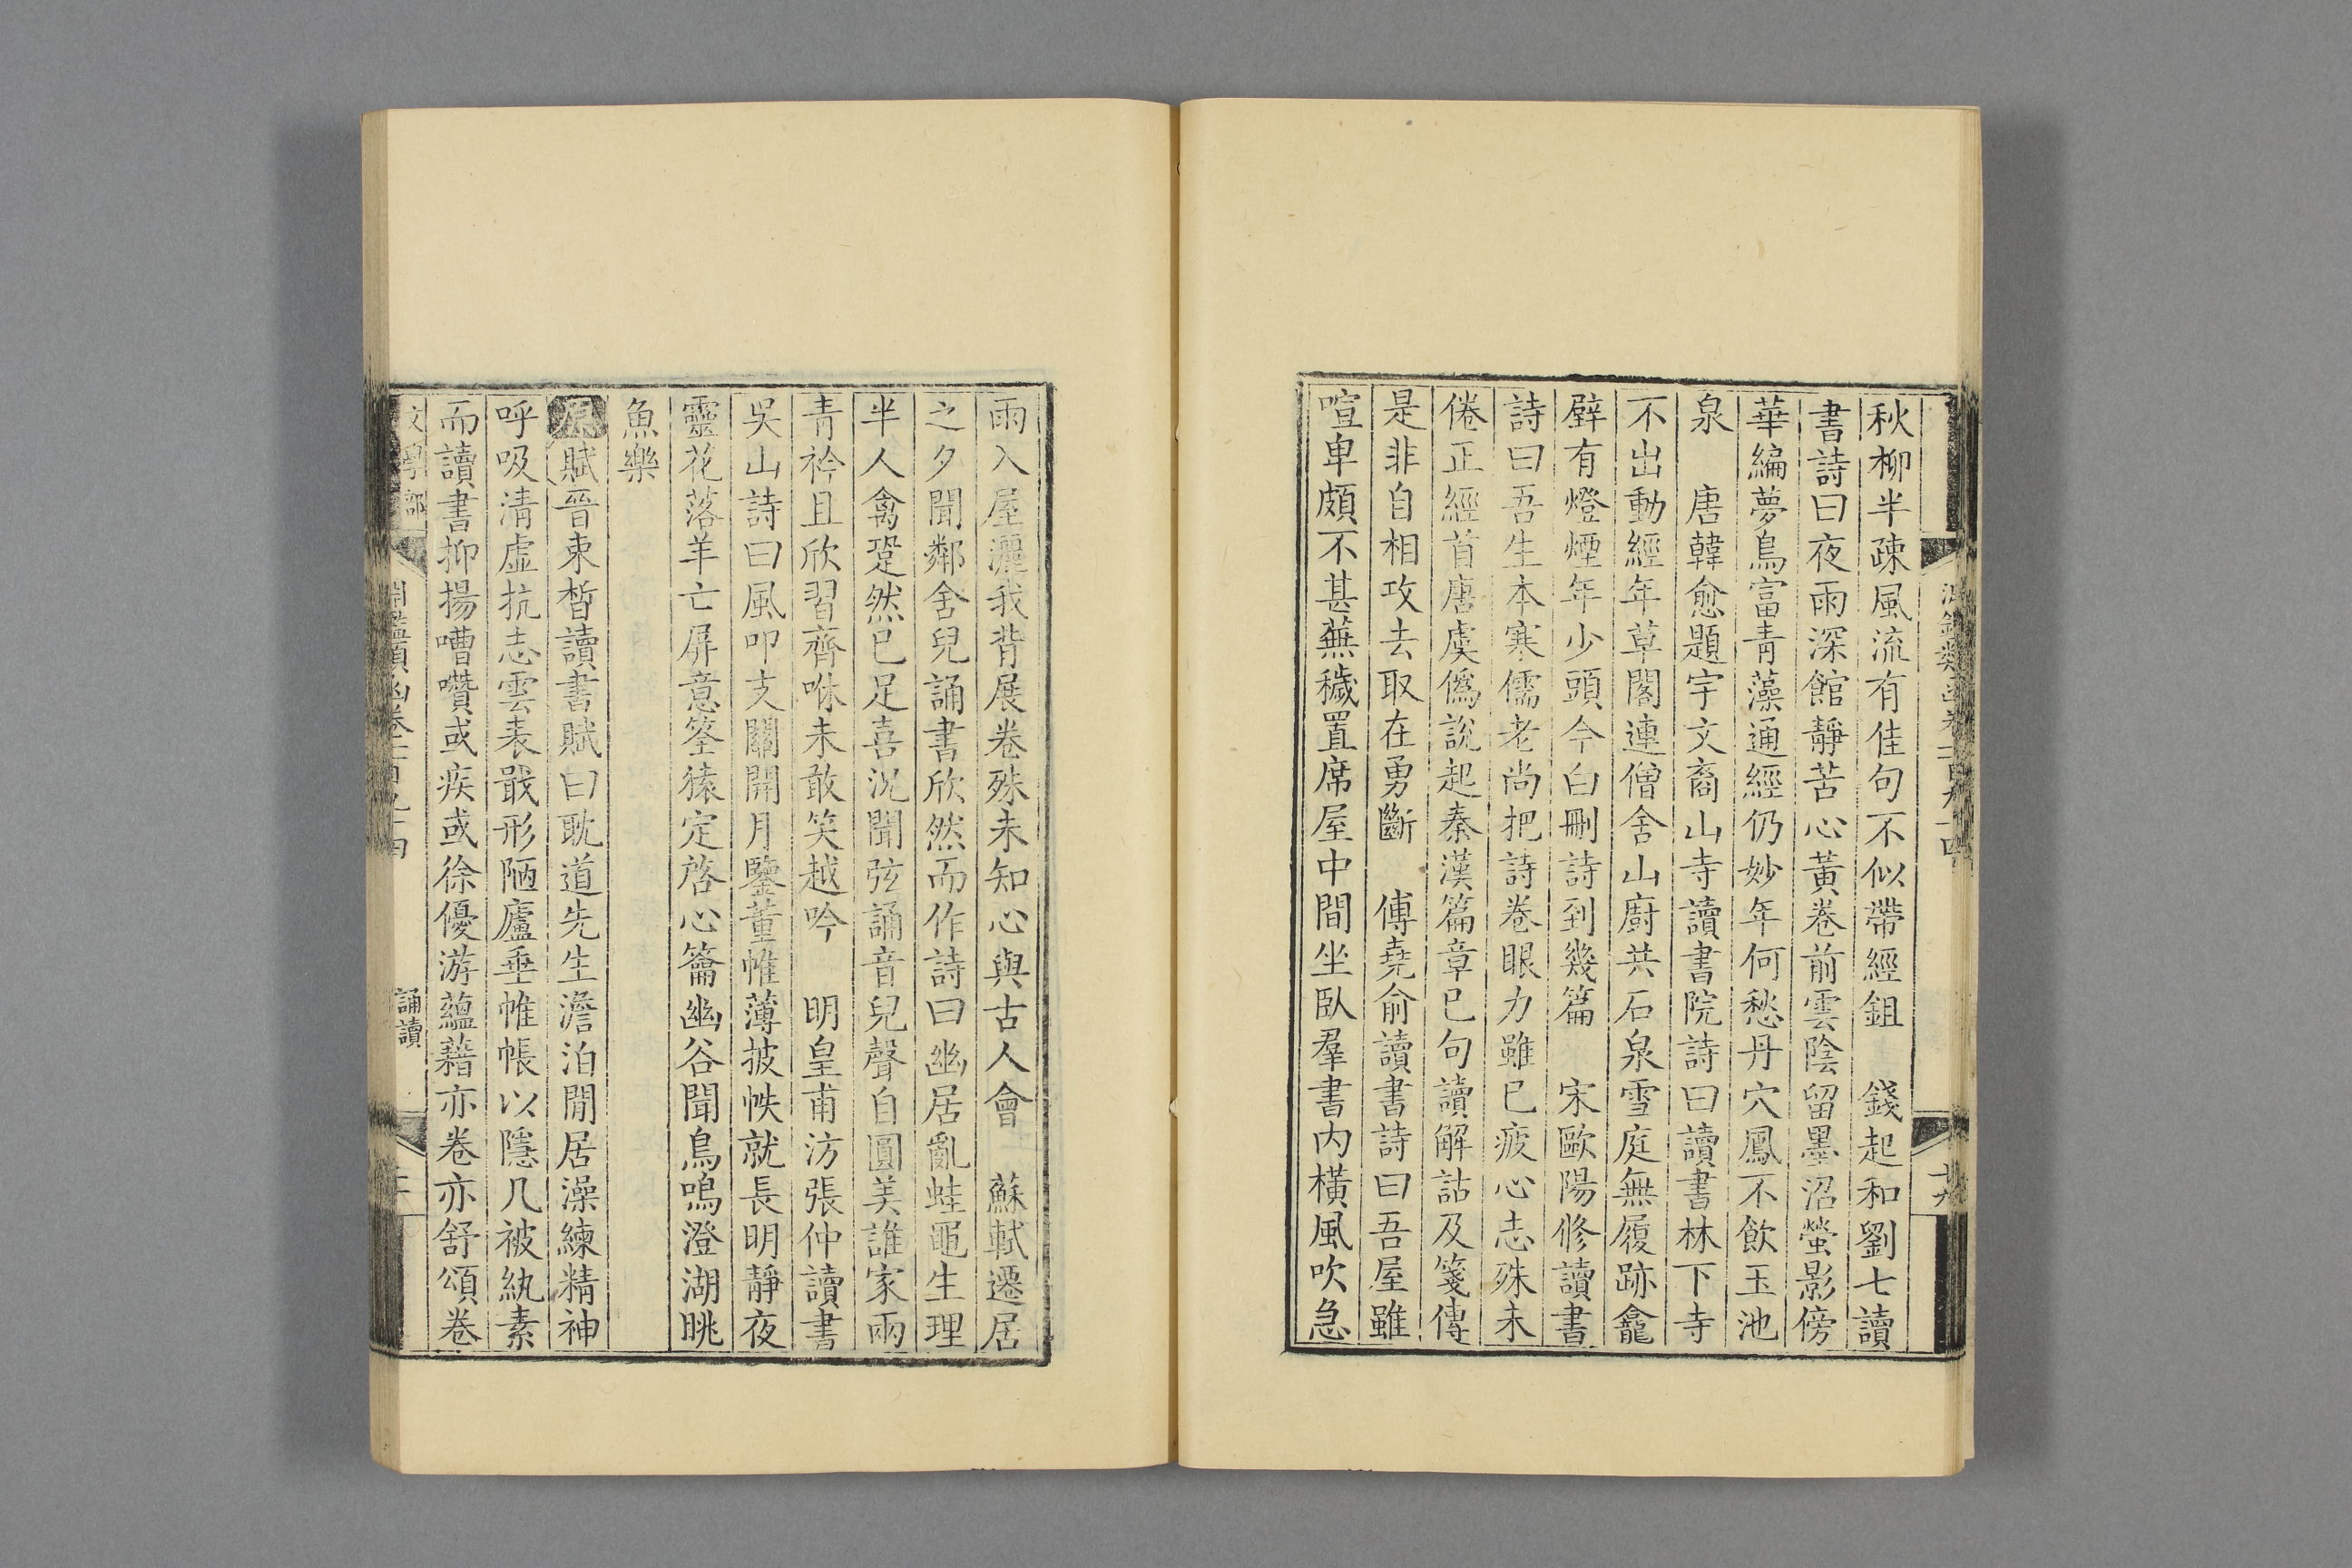 秋柳半疎風流有佳句不似帶經鉏　錢起和劉七讀
書詩曰夜雨深館靜苦心黃卷前雲陰留墨沼螢影傍
華編夢鳥富青藻通經仍妙年何愁丹穴鳳不飲玉池
泉　唐韓愈題宇文裔山寺讀書院詩曰讀書林下寺
不出動經年草閣連僧舍山廚共石泉雪庭無履跡龕
壁有燈煙年少頭今白刪詩到幾篇　宋歐陽修讀書
詩曰吾生本寒儒老尚把詩卷眼力雖已疲心志殊未
倦正經首唐虞僞說起秦漢篇章已句讀解詁及箋傳
是非自相攻去取在勇斷　傅堯俞讀書詩曰吾屋雖
喧卑頗不甚蕪穢置席屋中間坐臥羣書內橫風吹急
雨入屋灑我背展卷殊未知心與古人會　蘇軾遷居
之夕聞鄰舍兒誦書欣然而作詩曰幽居亂蛙黽生理
半人禽跫然已足喜況聞弦誦音兒聲自圓美誰家兩
青衿且欣習齊咻未敢笑越吟　明皇甫汸張仲讀書
吳山詩曰風叩支關開月鑒董帷薄披帙就長明靜夜
靈花落羊亡屏意筌猿定啓心籥幽谷聞鳥鳴澄湖眺
魚樂
原賦晉束皙讀書賦曰耽道先生澹泊閒居澡練精神
呼吸淸虛抗志雲表戢形陋廬垂帷帳以隱几被紈素
而讀書抑揚嘈囋或疾或徐優游蘊藉亦卷亦舒頌卷
誦讀